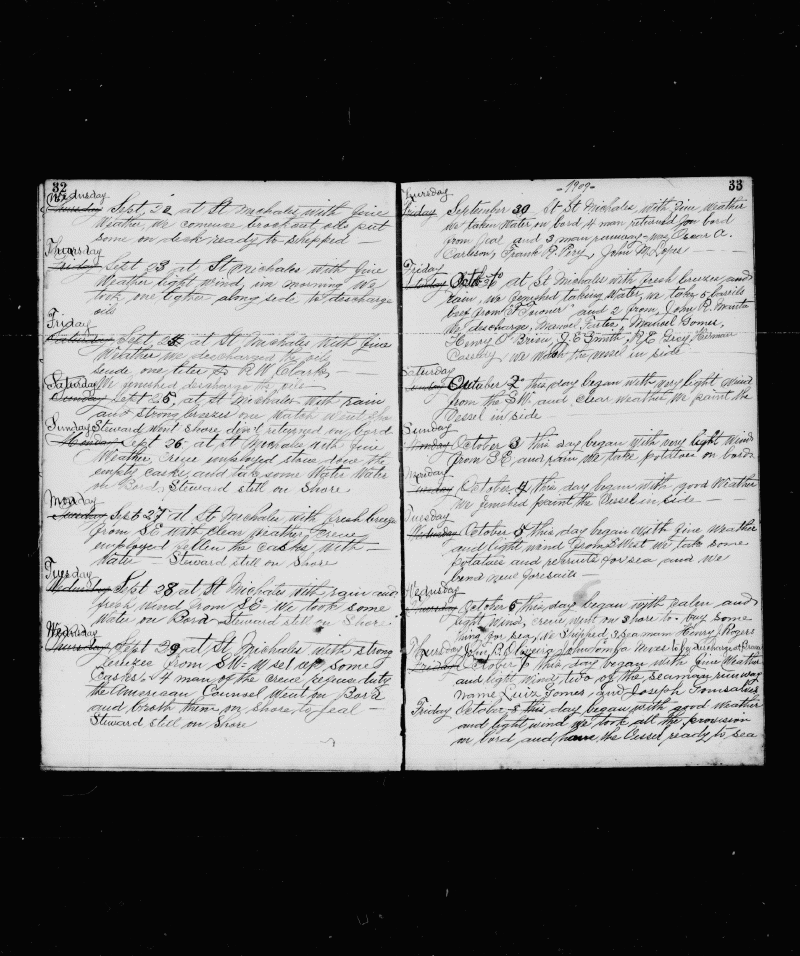 32
Wednesday
Thursday Sept, 22 at St Michales with fine
Weather, we comence brook out oils put
some on desk ready to shipped
Thursday
Friday Sept 23 at St Michales with fine
Weather light wind, in morning We
took one ligher along side to discharge
oils
Friday
Saturday Sept, 24 at St Michales with fine
Weather We discharged the oils —
sende one leter to R W Clark —
Saturday We finished discharge the oils —
Sunday Sept 25, at St Michales with rain
and strong breezes one Watch Went shor
Sunday Steward Went shore don't returned on bord
Monday Sept 26 at St Michales with fine
Weather, Creue employed stive down the
empty casks, and take some Water
on Bord, Steward still on Shore
Monday
Tuesday Sept 27 at St Michales with fresh breeze
from SE with clear weather, Creue
employed fellen the casks, With —
Water — Steward still on Shore
Tuesday
Wednesday Sept 28 at St Michales with rain and
fresh wind from SE — We took some
Water on Bord Steward still on Shore
Wednesday
Thursday Sept 29 at St, Michales with strong
breezes from SW. W set up some
Casks. 4 man of the creue refuse duty
the American Counsel Went on Bord
and broth them on shore, to Jeal —
Steward still on Shore
-1909-
33
Thursday
Friday September 30 At St Michales with fine Weather
We taken Water on bord 4 man returned on bord
from Jeal and 3 man remany was Oscar A.
Carlson, Frank R. Pery, John M. Lopes —
Friday
Saturday October 1º at St Michales with fresh breezes and
rain, we finished taking Water, we take 5 barrils
beef from and 2 from John R. Manta
We discharge, Manuel Manuel Gomes,
Henry O Brien, J E Smith, R L Grey, Herman
We wash the vessel in side —
Saturday
Sunday October 2º this day began with very light wind
from the SW. and clear weather, We paint the
Vessel in side —
Sunday
Monday October 3 this day began with very light wind
from SE, and rain, we take potatoes on bord
Monday
Tuesday October 4 this day began with good Weather
We finished paint the Vessel in side —
Tuesday
Wednesday October 5 this day began with fine Weather
and light wind from SWest We take some
potatoes and recruits for sea and we
bend new foresail —
Wednesday
Thursday October 6 this day began with and
light wind, creue went on shore to buy some
thing for sea, We Shipped, 3 Seaman Henry Rogers
Thursday John P. Oliveira
Friday October 7 this day began with fine Weather
and light wind, two of the seaman runway
name Luiz Gomes, and Joseph Gonsalves
Friday October 8 this day began with good weather
and light wind we took all the provision
on bord and have the Vessel ready to sea